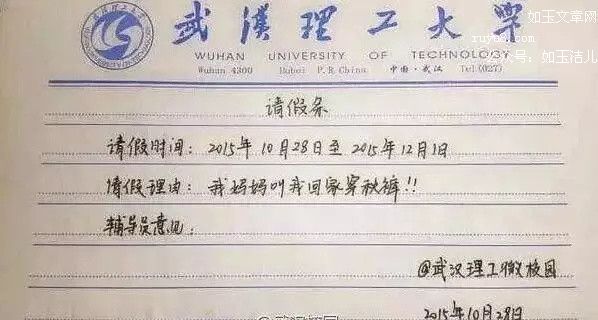 如玉文章网
武漢理工大學
ruyu
公众号：如玉洁儿
WUHAN UNIVERSITY OF TECHNOLOGY
Wuhan 4300 Hubei P.R.China 中国·武汉 Tel.(027)
请假条
请假时间：2015年10月28日至2015年12月1日
请假理由：我妈妈叫我回家穿秋裤!!
辅导员意见：
@武汉理工微校园
2015年10月28日